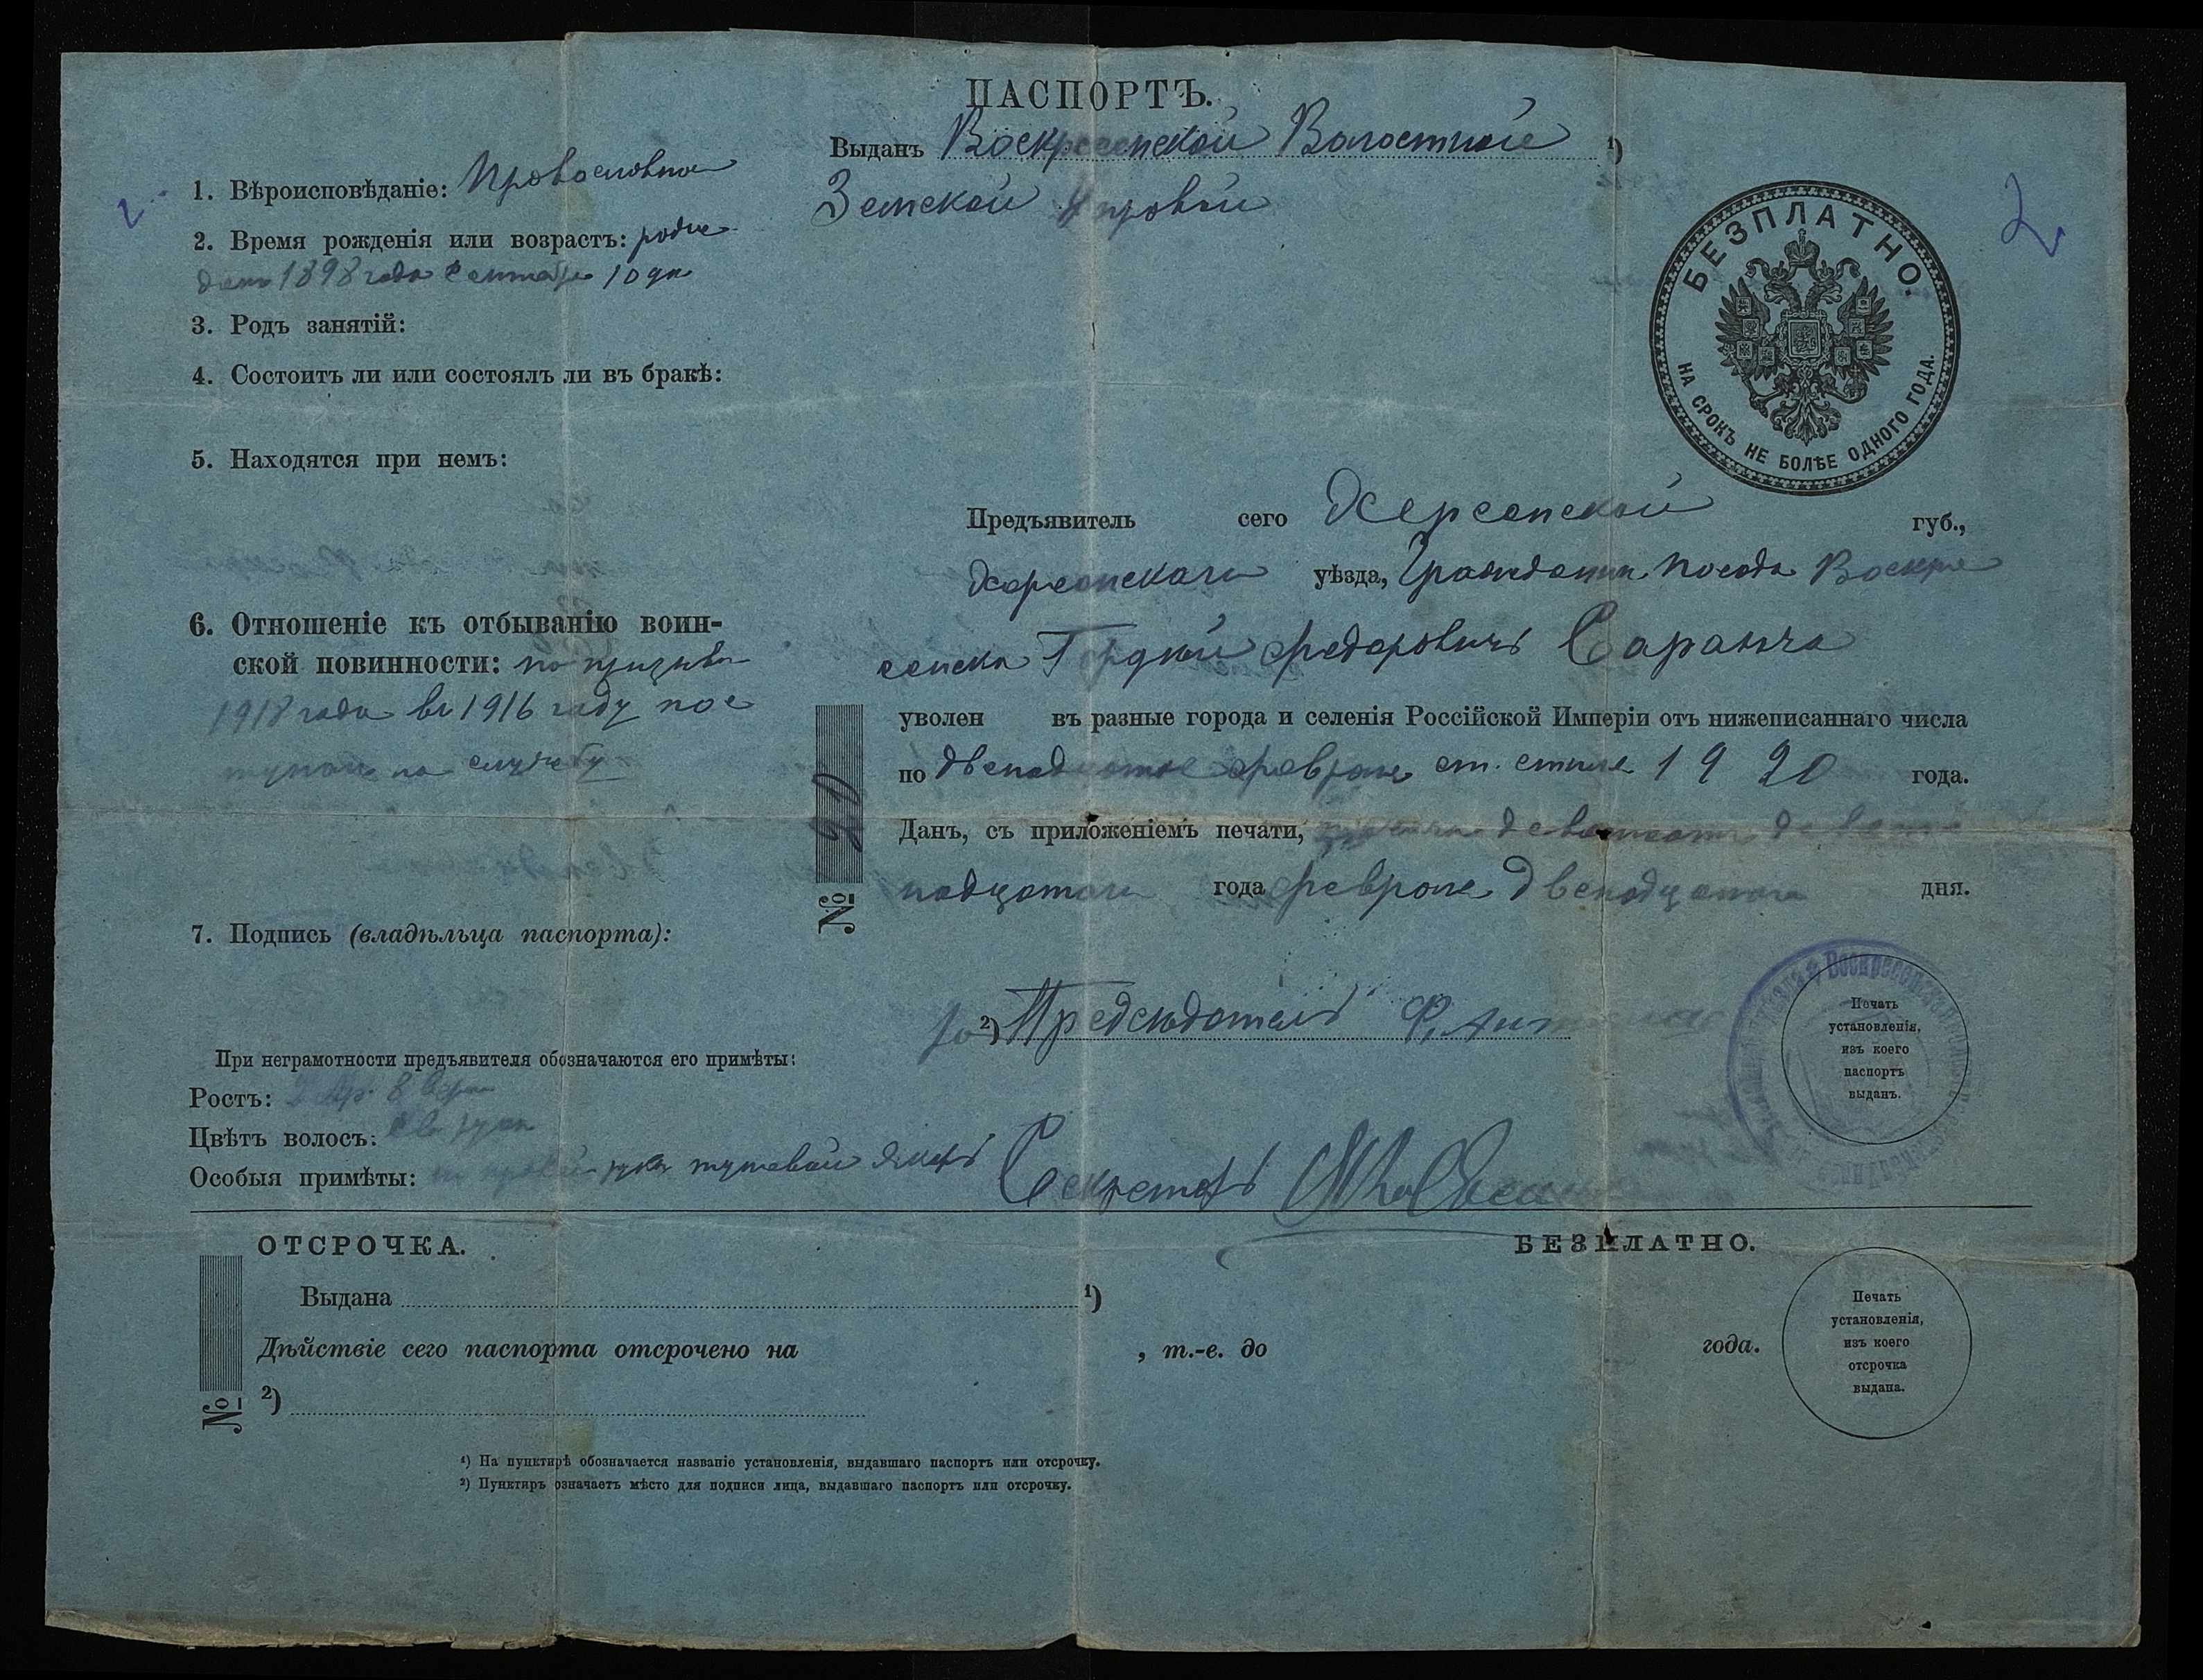 ПАСПОРТЪ.
Выданъ Воскресенской Волостной ¹)
Земской Управой
1. Вѣроисповѣданіе: Провославное
2. Время рожденія или возрастъ: родил
1898 года Сентября 10 дня
3. Родъ занятій:
4. Состоитъ ли или состоялъ ли въ бракѣ:
5. Находятся при немъ:
6. Отношеніе къ отбыванію воин-
ской повинности: по призыву
1918 года въ 1916 году пос
на службу
7. Подпись (владѣльца паспорта):
При неграмотности предъявителя обозначаются его примѣты:
Ростъ: 2 ар. 8 вер
Цвѣтъ волосъ:
Особыя примѣты: рука
БЕЗПЛАТНО.
НА СРОКЪ НЕ БОЛѢЕ ОДНОГО ГОДА.
2
Предъявитель сего Херсонской губ.,
Херсонскаго уѣзда, Гражданин посада Воскре
сенска Гордей Федоровичъ Саранча
уволен въ разные города и селенія Россійской Имперіи отъ нижеписаннаго числа
по двенадцатое февраля ст. стиля 1920 года.
Данъ, съ приложеніемъ печати, тысяча девятсотъ девят
надцатаго года февраля двенадцатаго дня.
№ 20
²) Председатель
Секретарь
Печать
установленія,
изъ коего
паспортъ
выданъ.
ОТСРОЧКА.
БЕЗПЛАТНО.
Выдана ¹)
Дѣйствіе сего паспорта отсрочено на , т.-е. до года.
№
²)
Печать
установленія,
изъ коего
отсрочка
выдана.
¹) На пунктирѣ обозначается названіе установленія, выдавшаго паспортъ или отсрочку.
²) Пунктиръ означаетъ мѣсто для подписи лица, выдавшаго паспортъ или отсрочку.